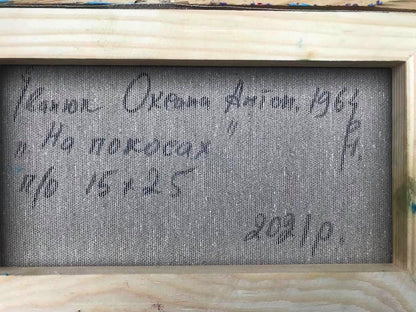 Ївонюк Оксана Антон. 1964 р.н.
„На покосах"
п/о 15×25
2021р.